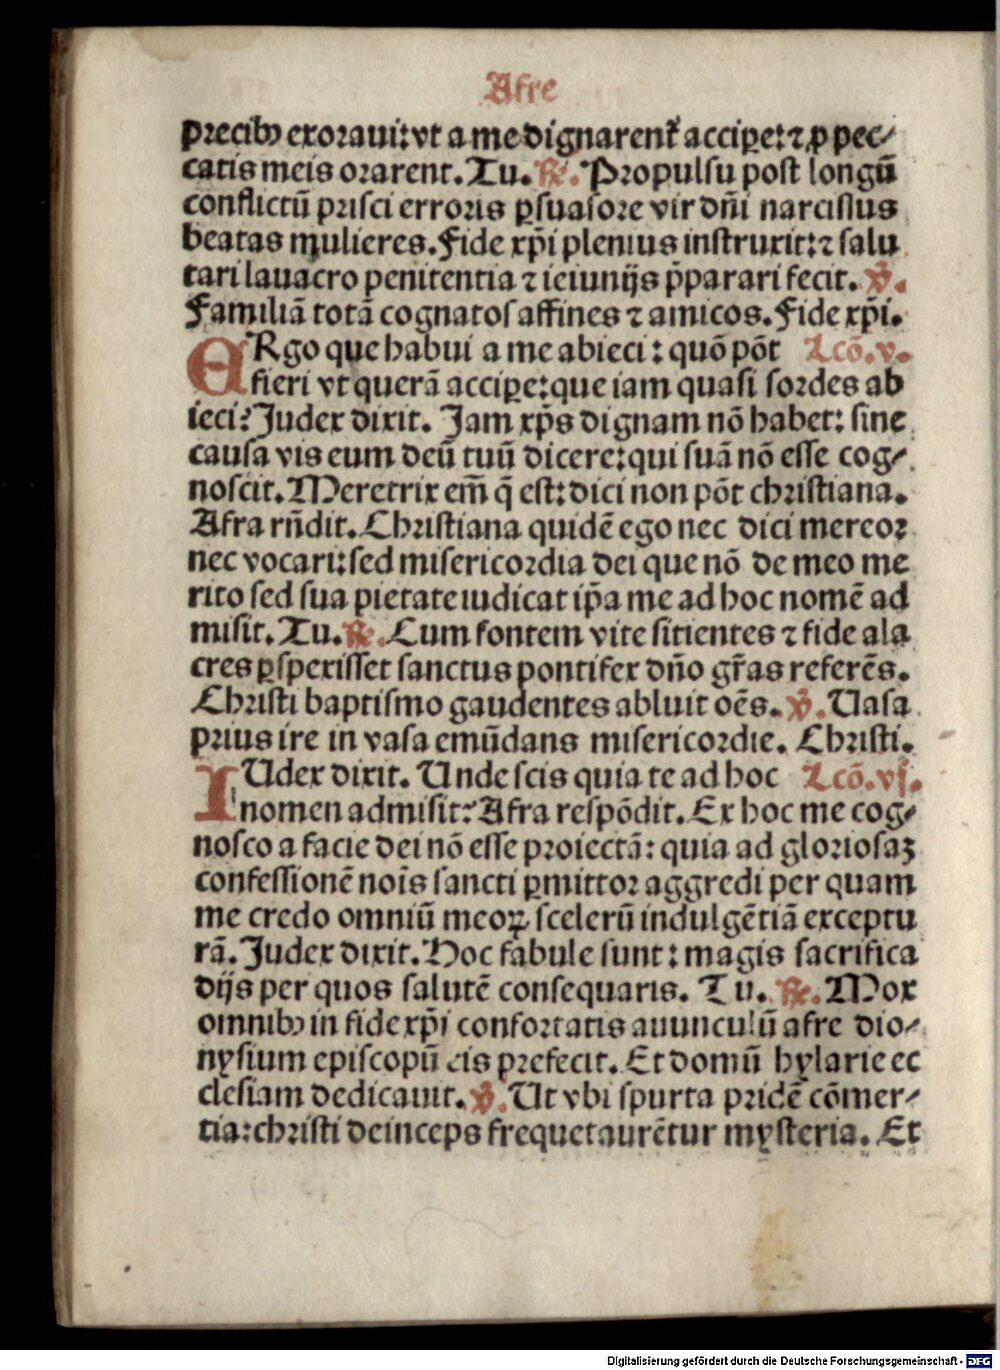 Afre
precibꝰ exoraui: vt a me dignarent᷑ accipe̲: ⁊ ꝓ pec⸗
catis meis orarent. Tu. ℟. Propulsu post longū
conflictū prisci erroris ꝑsuasore vir dn̄i narcissus
beatas mulieres. Fide xp̄i plenius instruxit: ⁊ salu
tari lauacro penitentia ⁊ ieiunijs p̄parari fecit. ℣.
Familiā totā cognatos affines ⁊ amicos. Fide xp̄i.
ERgo que habui a me abieci: quō pōt Lcō. v.
fieri vt querā accipe̲: que iam quasi sordes ab
ieci? Judex dixit. Jam xp̄s dignam nō habet: sine
causa vis eum deū tuū dicere: qui suā nō esse cog⸗
noscit. Meretrix em̄ q̄ est: dici non pōt christiana.
Afra rn̄dit. Christiana quidē ego nec dici mereor
nec vocari: sed misericordia dei que nō de meo me
rito sed sua pietate iudicat ip̄a me ad hoc nomē ad
misit. Tu. ℟. Cum fontem vite sitientes ⁊ fide ala
cres ꝑspexisset sanctus pontifex dn̄o gr̄as referēs.
Christi baptismo gaudentes abluit oēs. ℣. Uasa
prius ire in vasa emūdans misericordie. Christi.
IUdex dixit. Unde scis quia te ad hoc Lcō. vj.
nomen admisit? Afra respōdit. Ex hoc me cog⸗
nosco a facie dei nō esse proiectā: quia ad gloriosaꝫ
confessionē nois̄ sancti ꝑmittor aggredi per quam
me credo omniū meoꝝ scelerū indulgētiā exceptu
rā. Judex dixit. Hoc fabule sunt: magis sacrifica
dijs per quos salutē consequaris. Tu. ℟. Mox
omnibꝰ in fide xp̄i confortatis auunculū afre dio⸗
nysium episcopū eis prefecit. Et domū hylarie ec
clesiam dedicauit. ℣. Ut vbi spurta pridē cōmer⸗
tia: christi deinceps frequetaurētur mysteria. Et
Digitalisierung gefördert durch die Deutsche Forschungsgemeinschaft - DFG